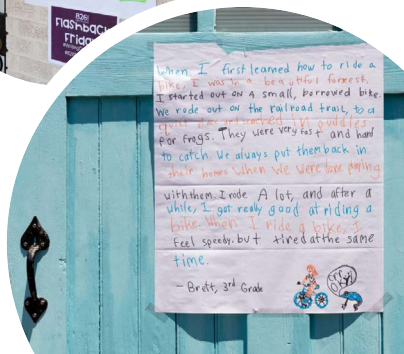 826!
FlasHbaCk
FRida
When I first learned how to ride a
bike, I was in a beautiful forrest.
I started out on A small, borrowed bike.
We rode out on the railroad trail, to a
quiet place and looked in puddles
for frogs. They were very fast and hard
to catch. We always put them back in
their homes when we were done playing
with them. I rode A lot, and after a
while, I got really good at riding a
bike. When I ride a bike, I
feel speedy. but tired at the same
time.
- Brett, 3rd Grade